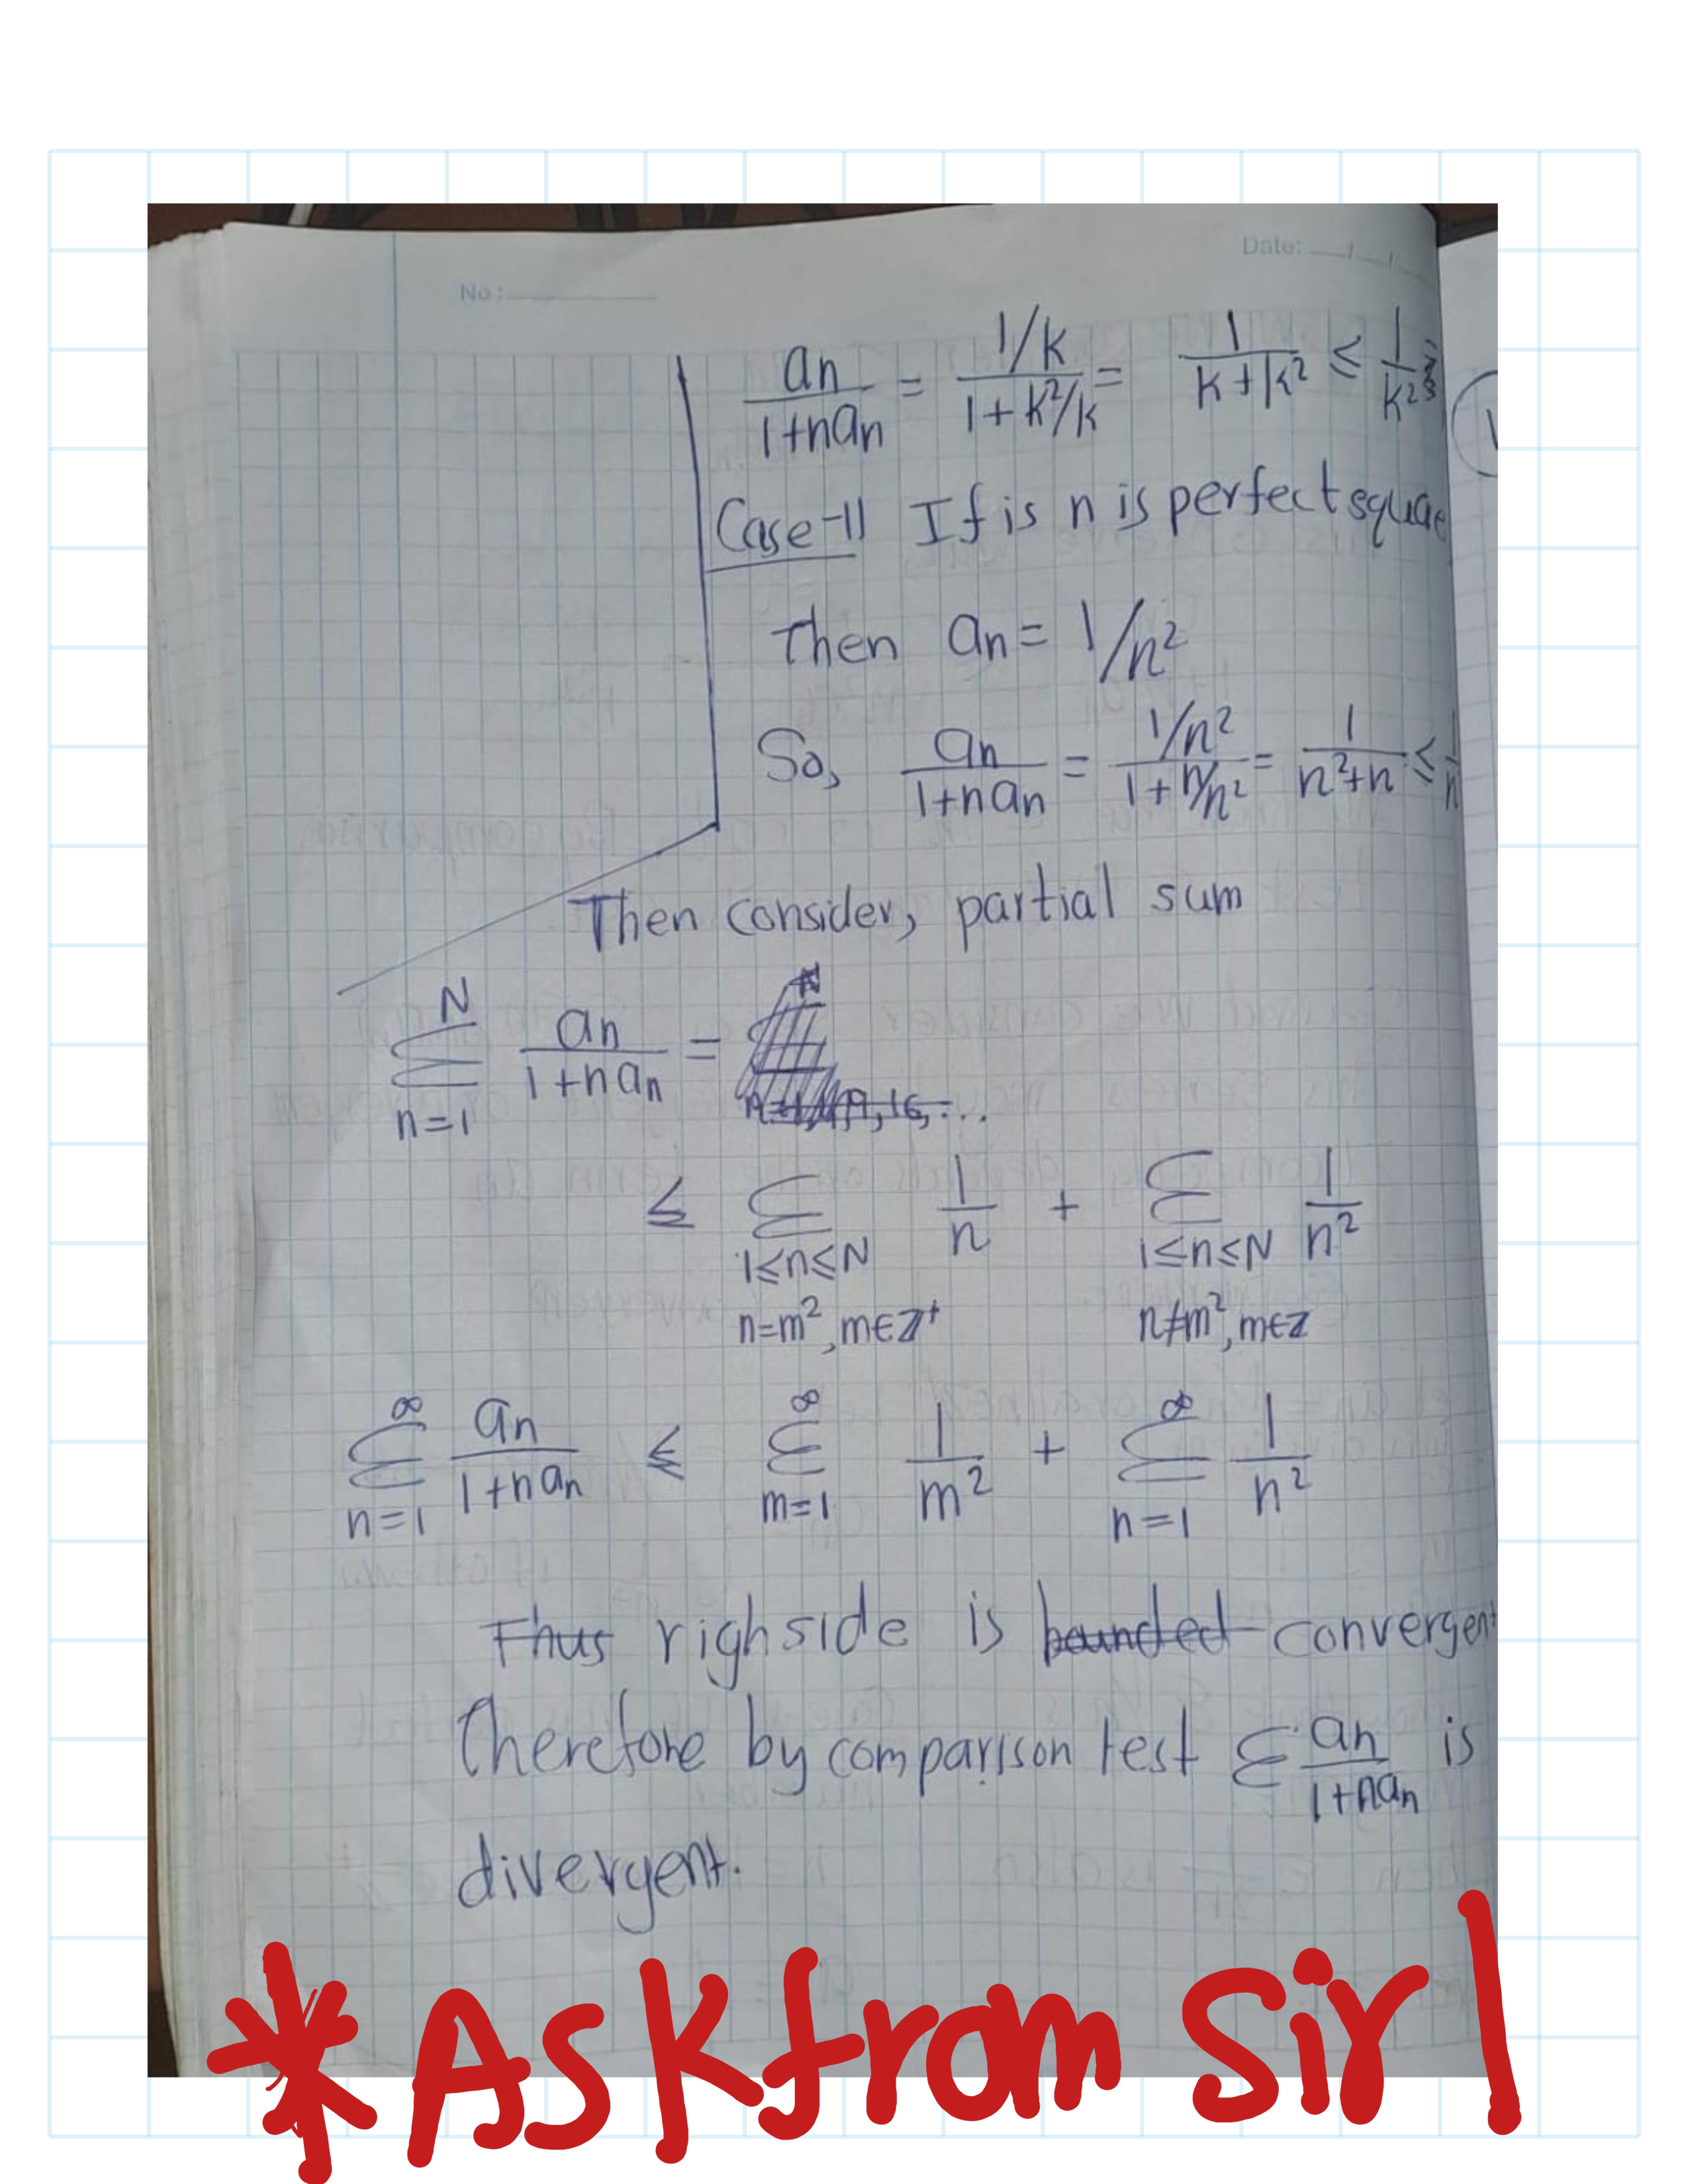 No:
Date: __/__/__
an/(1+nan) = (1/k)/(1+k²/k) = 1/(k+k²) ≤ 1/k²
Case-II If is n is perfect squae
Then an = 1/n²
So, an/(1+nan) = (1/n²)/(1+n/n²) = 1/(n²+n) ≤ 1/n
Then consider, partial sum
N Σ n=1 an/(1+nan) =
≤ Σ 1≤n≤N n=m², m∈Z⁺ 1/n + Σ 1≤n≤N n≠m², m∈Z 1/n²
∞ Σ n=1 an/(1+nan) ≤ ∞ Σ m=1 1/m² + ∞ Σ n=1 1/n²
Thus righside is bounded convergent
therefore by comparison test Σ an/(1+nan) is
divergent.
*Ask from Sir!